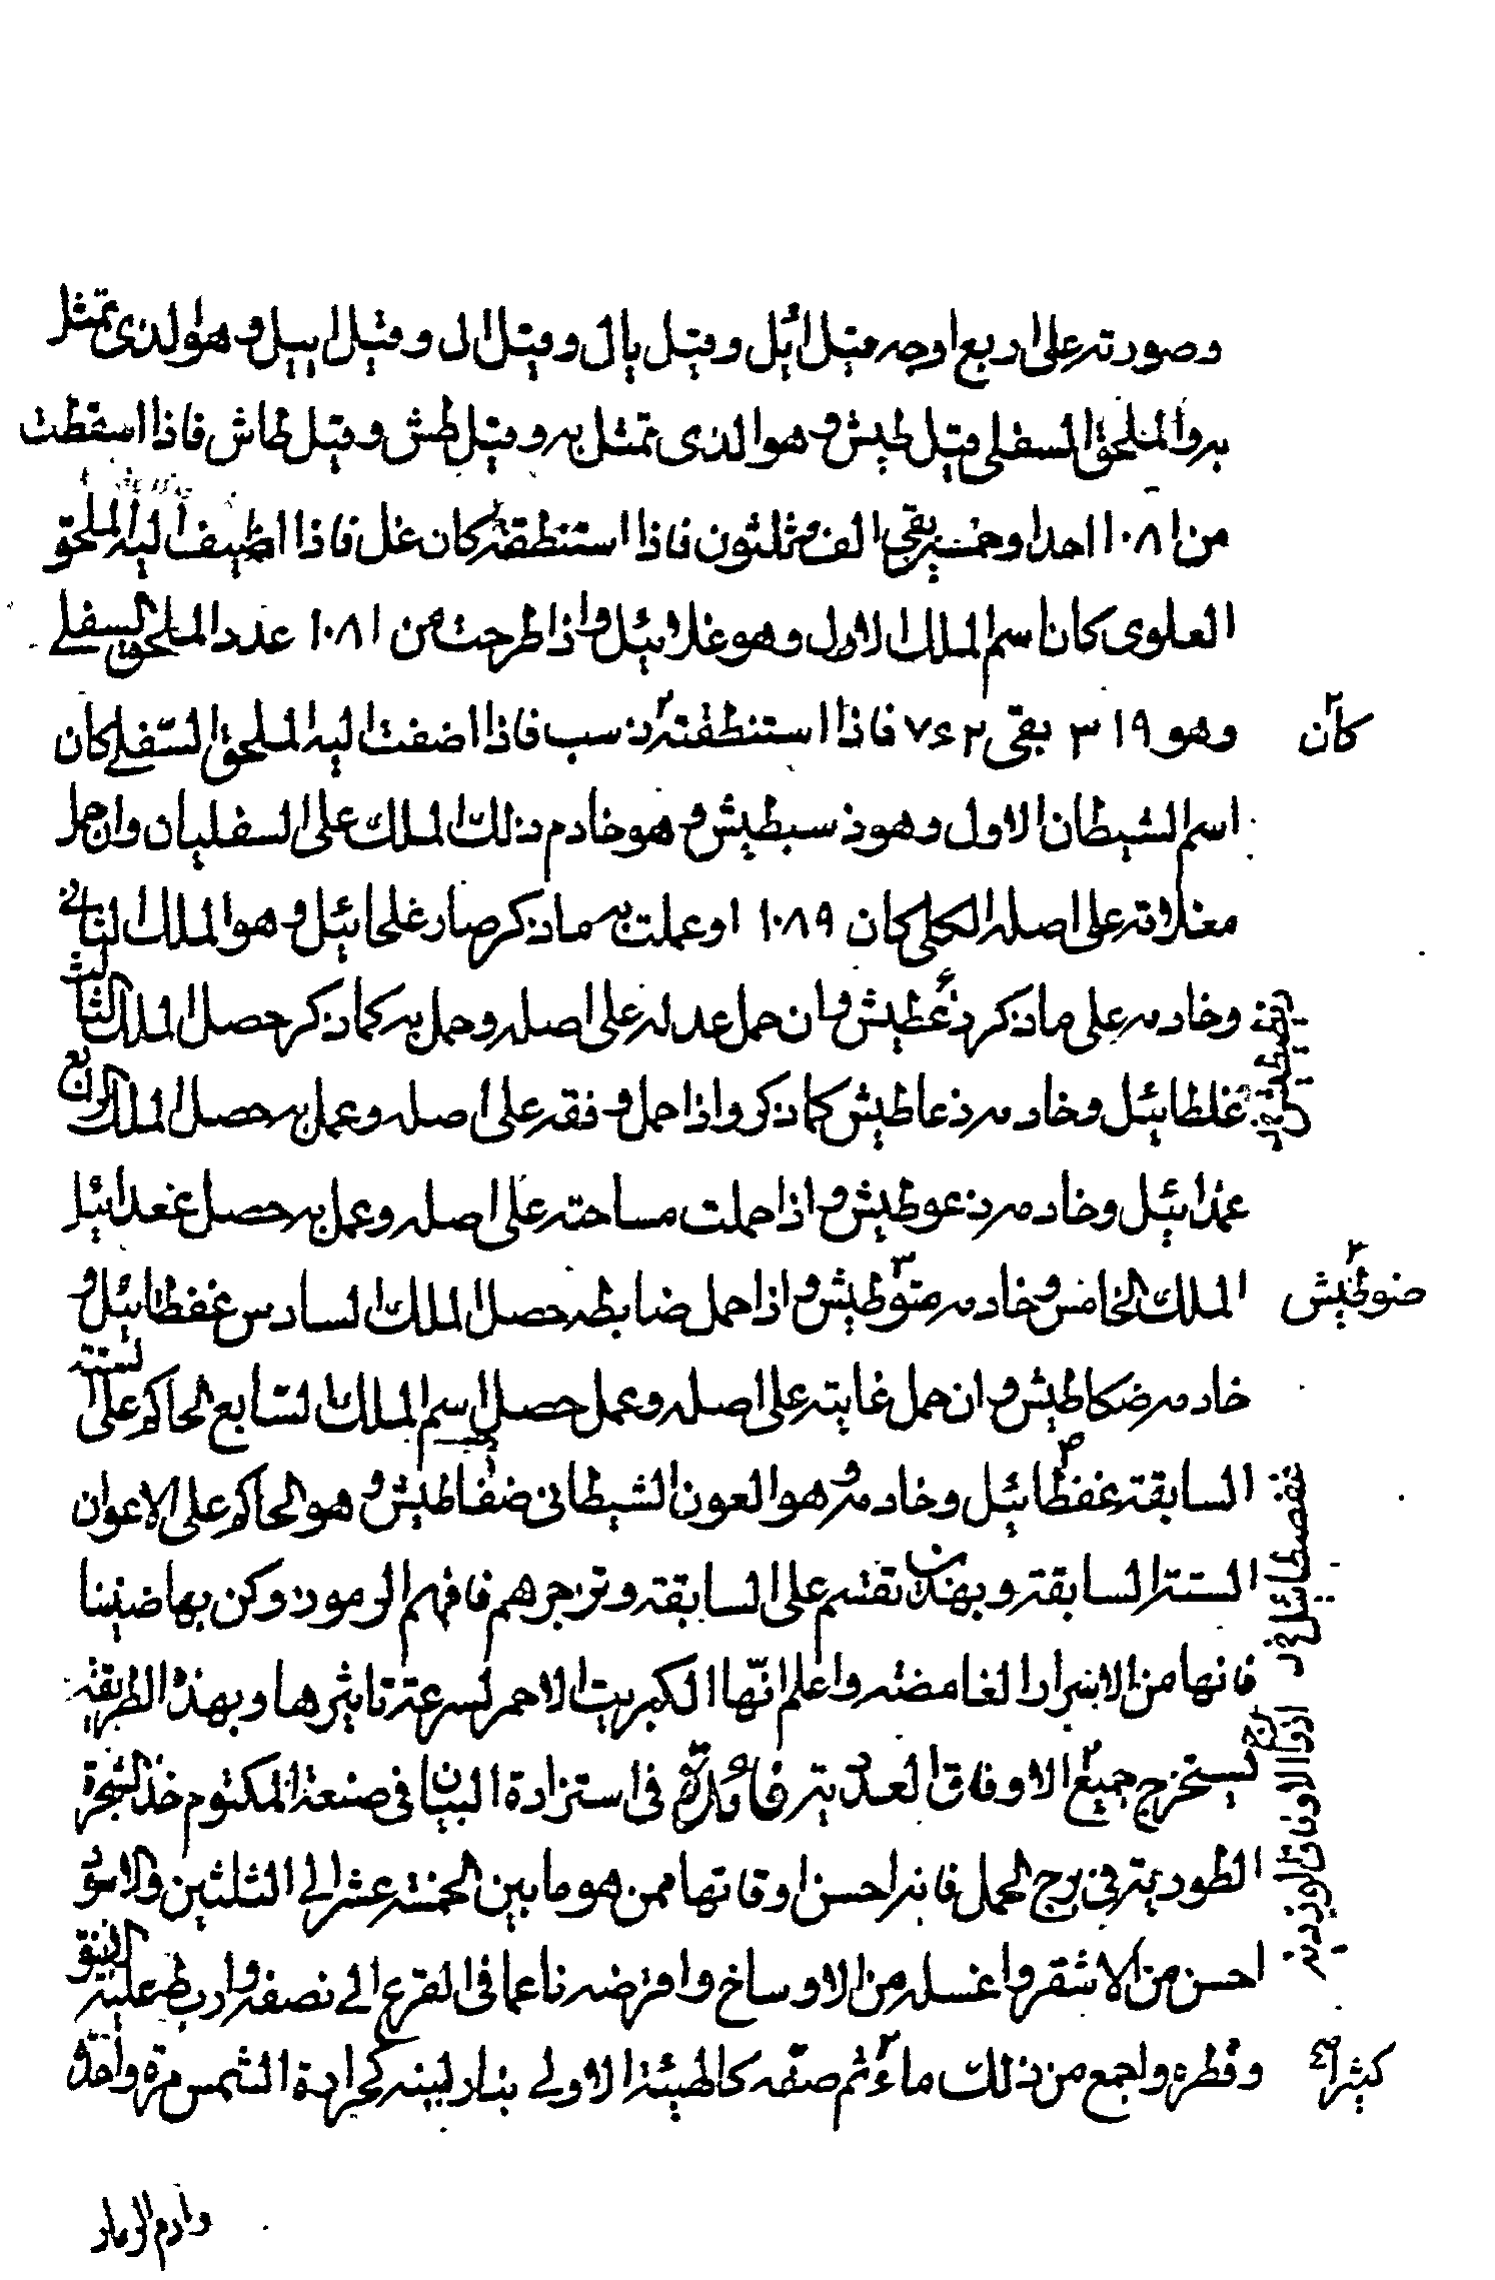 وصورته على اربع اوجه قيل ائيل وقيل يال وقيل ال وقيل اييل وهو الذى تمثل
به والملحق السفلى قيل طيش وهو الذى تمثل به وقيل طش وقيل طاش فاذا اسقطت
من ١٠٨١ احدا وخمسين بقي الف وثلثون فاذا استنطقته كان غل فاذا اضيف اليه الملحق
العلوى كان اسم الملك الاول وهو غلائيل واذا طرحت من ١٠٨١ عدد الملحق السفلي
وهو ٣١٩ بقى ٧٦٢ فاذا استنطقته ذسب فاذا اضفت اليه الملحق السفلي كان
كان
اسم الشيطان الاول وهو ذسبطيش وهو خادم ذلك الملك على السفليان وان حمل
مغلاقه على اصله الكلى كان ١٠٨٩ اوعملت به ماذكر صار غلحائيل وهو الملك الثانى
وخادمه على ماذكر ذعطيش وان حمل عدله على اصله وحمل به كما ذكر حصل الملك الثالث
غلطائيل وخادمه ذعاطيش كما ذكر واذا حمل وفقه على اصله وعمل به حصل الملك الرابع
غمدائيل وخادمه ذعوطيش واذا حملت مساحته على اصله وعمل به حصل غعدائيل
الملك الخامس وخادمه ضوطيش واذا حمل ضابطه حصل الملك السادس غفظائيل و
ضوطيش
خادمه ضكاطيش وان حمل غايته على اصله وعمل حصل اسم الملك السابع الحاكم على الستة
السابقة غفظائيل وخادمه وهو العون الشيطانى ضفاطيش وهو الحاكم على الاعوان
الستة السابقة وبهذان تقسم على السابقة وتزجرهم فافهم الرموز وكن بها ضنينا
فانها من الاسرار الغامضة واعلم انّها الكبريت الاحمر لسرعة تاثيرها وبهذه الطريقة
تستخرج جميع الاوفاق العددية فائدة فى استزادة البيان فى صنعة المكتوم خذ الشجرة
الطوريّة فى برج الحمل فانه احسن اوقاتها ممن هو مابين الخمسة عشر الى الثلثين والاسود
احسن من الاشقر واغسله من الاوساخ واقرضه ناعما فى القرع الى نصفه واربط عليه الانبيق
وقطره واجمع من ذلك ماء ثم صفّه كالهيئة الاولى بنار لينه كحرارة الشمس مرة واحدة
كثيرا
وادم الرماد